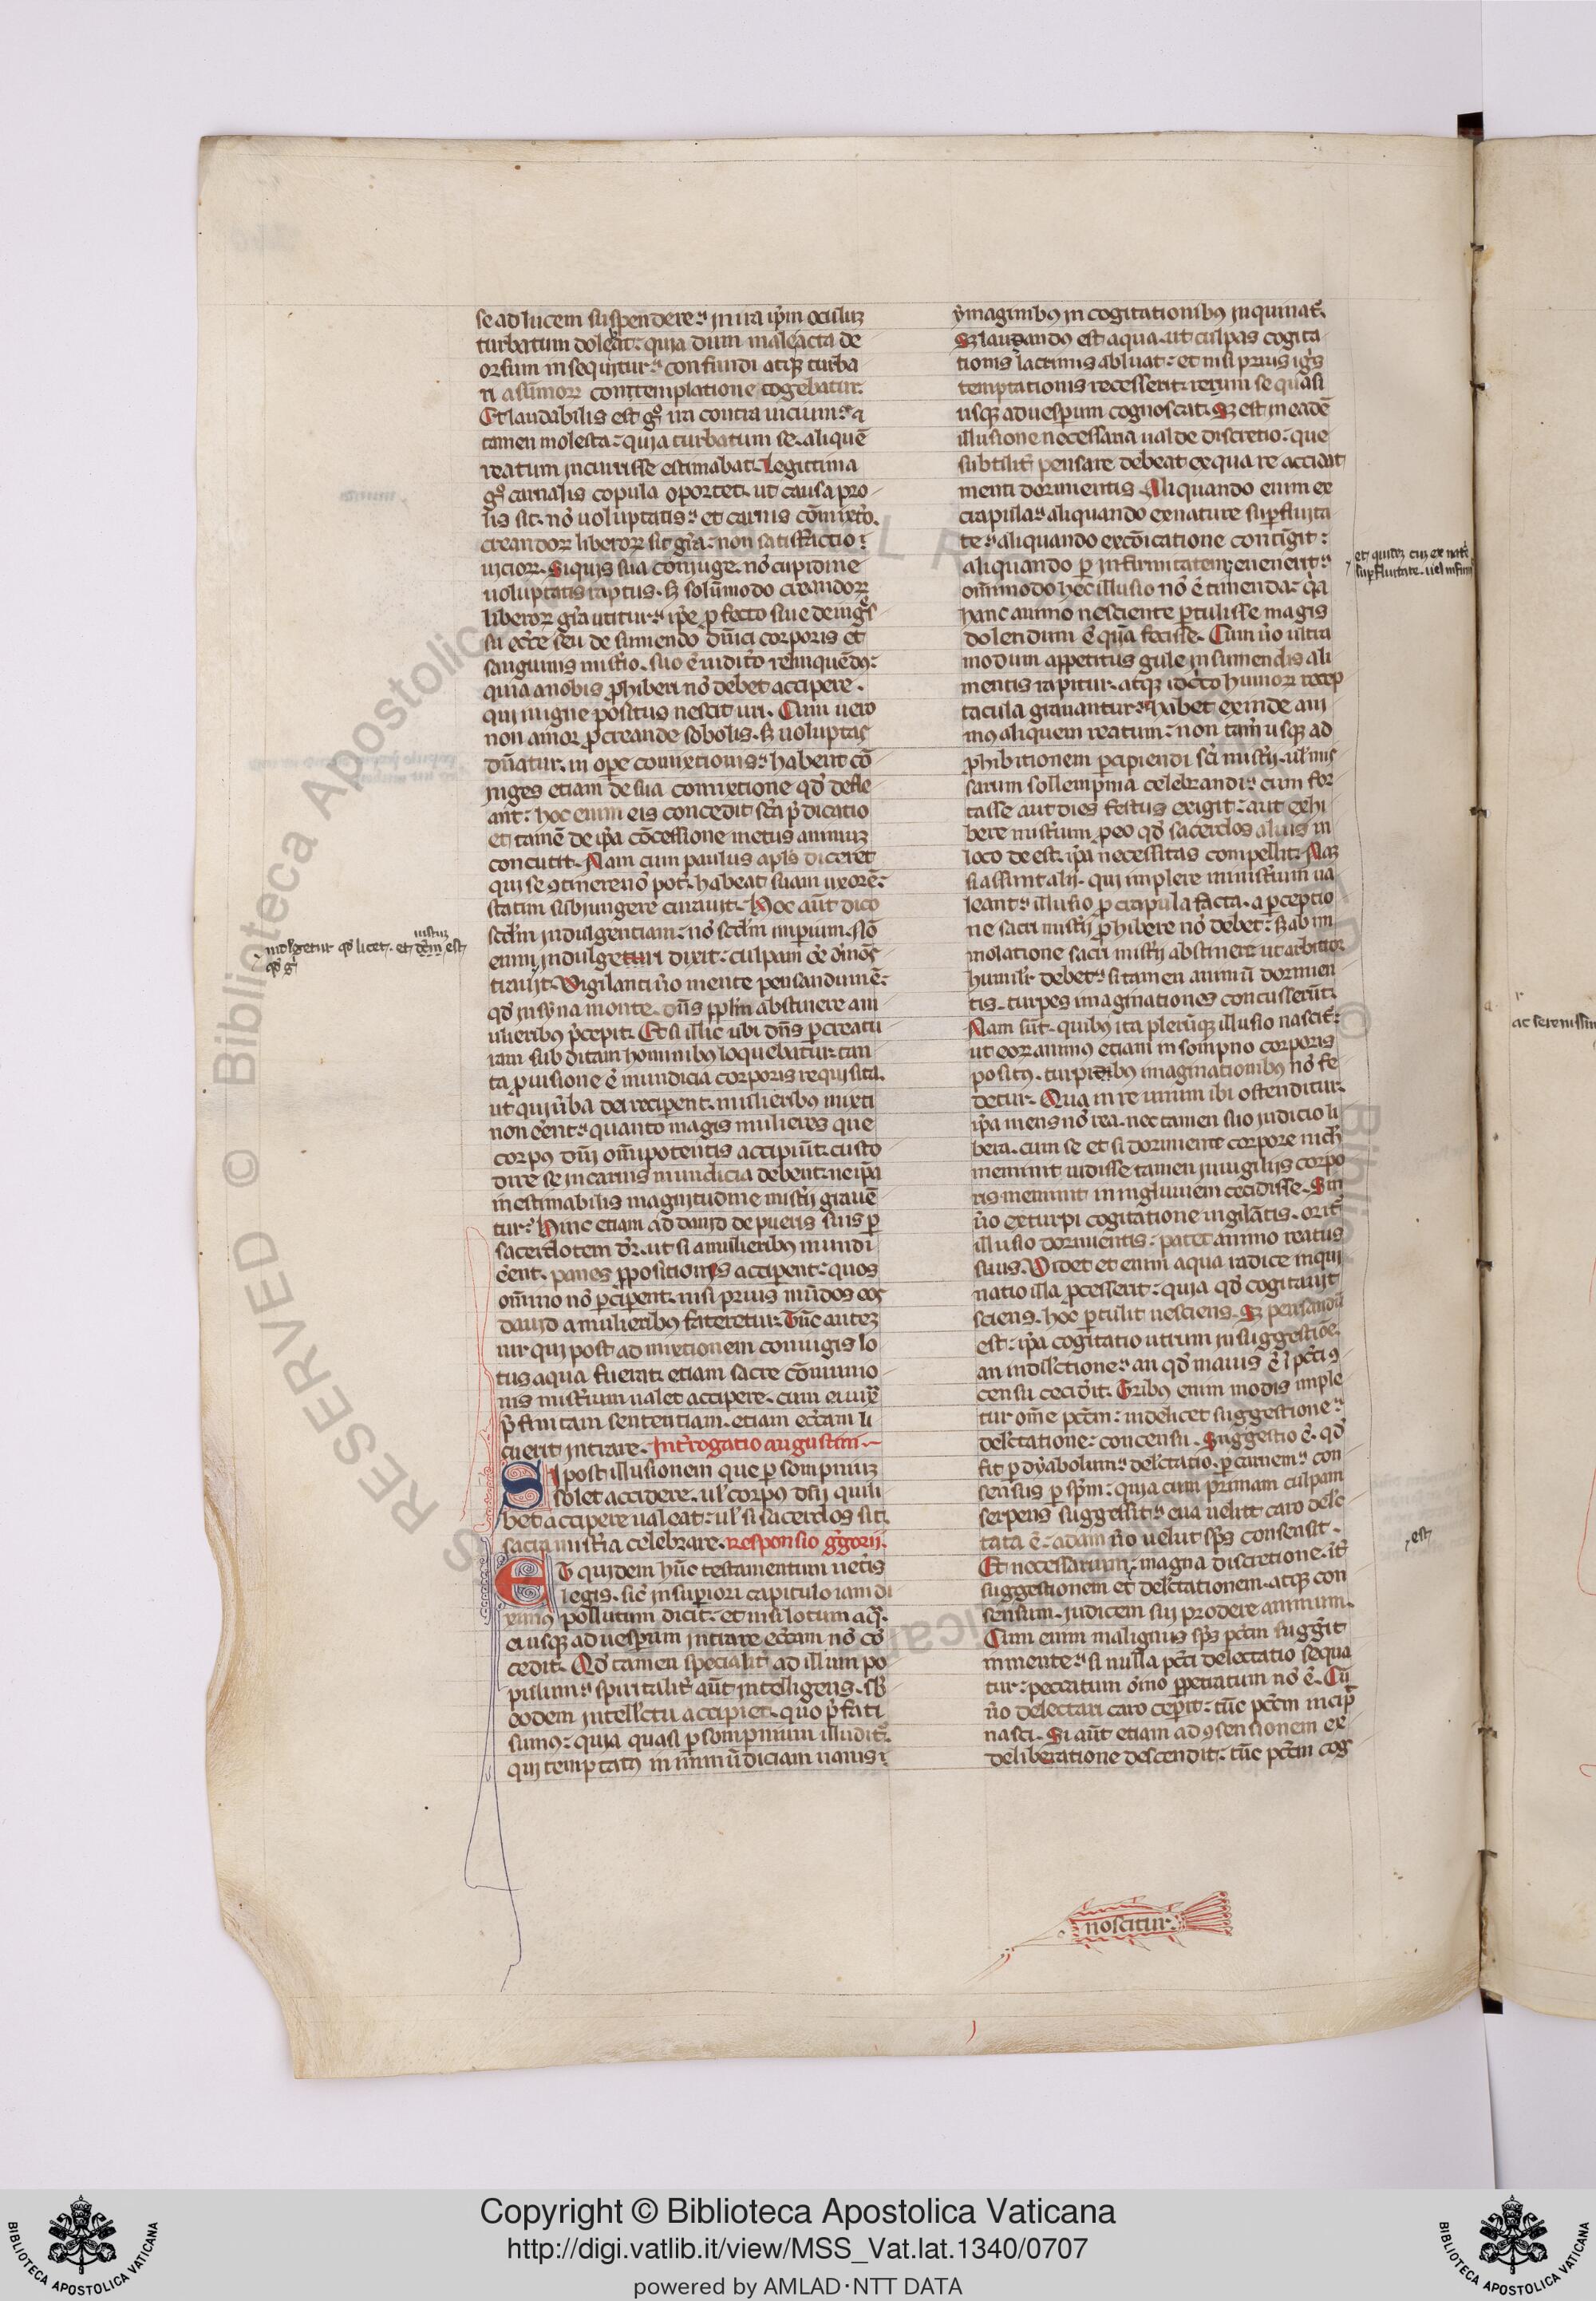 se ad lucem suspendere. in ira ip̄m oculuꝫ
turbatum doleat: quia dum male acta de
orsum insequitur. confundi atqꝫ turba
ri a sum̄orꝝ contemplatione cogebatur.
Et laudabilis est gͦ ira contra uicium. ⁊
tamen molesta: quia turbatum se. aliquē
reatum incurrisse estimabat. Legittima
gͦ carnalis copula oportet. ut causa pro
lis sit. nō uoluptatis. et carnis cōmixtio.
creandorꝝ liberorꝝ sit gr̄a: non satisfactio
uiciorꝝ. Siquis sua coniuge. nō cupidine
uoluptatis raptus. sꝫ solūmodo creandorꝝ
liberorꝝ gr̄a utitur. ip̄e ꝓfecto siue de ingͤs
su ecc̄e seu de sumendo dn̄ici corporis et
sanguinis mist̄io. suo ē iudicͦo relinquēdꝰ:
quia a nobis ꝓhiberi nō debet accipere.
qui in igne positus nescit uri. Cum uero
non amor ꝓcreande sobolis. sꝫ uoluptas
dn̄atur. in oꝑe cōmixtionis. habent cō
iuges etiam de sua commixtione qd̓ defle
ant: hoc enim eis concedit sc̄a p̄dicatio
et tamē de ip̄a cōcessione metus animuꝫ
concutit. Nam cum paulus apl̓s diceret
qui se ꝯtinere nō pot̓. habeat suam uxorē.
statim subiungere curauit. Hoc aūt dico
sed̓m indulgentiam: nō sed̓m imꝑium. Nō
enim indulgeturi dixit: culpam eē dmōs
trauit. Uigilanti ū̓o mente pensandum ē.
qd̓ in syna monte. dn̄s ppl̓m abstinere a m
ulieribus p̄cepit. Et si illic ubi dn̄s ꝑ creatu
ram subditam hominibꝰ loquebatur tan
ta ꝓuisione ē mundicia corporis requisita.
ut qui ū̓ba dei reciperent. mulieribꝰ mixti
non eēnt. quanto magis mulieres que
corpꝰ dn̄i om̄ipotentis accipiūt. custo
dire se in carnis mundicia debent: ne ip̄a
inestimabilis magnitudine mist̄ij grauē
tur. Hinc etiam ad dauid de pueris suis ꝑ
sacerdotem dr̄. ut si a mulieribꝰ mundi
eēnt. panes ꝓpositionis acciꝑent: quos
om̄ino nō ꝑciꝑent. nisi prius mūdos eos
dauid a mulieribꝰ fateretur. Tūc auteꝫ
uir qui post admixtionem coniugis lo
tus aqua fuerat. etiam sacre cōmunio
nis mist̄ium ualet accipere. cum ei iux̄
p̄finitam sententiam. etiam ecc̄am li
cuerit intrare. Int̓rogatio augustini
SI post illusionem que ꝑ sompniuꝫ
solet accidere. ul̓ corpꝰ dn̄i quili
bet accipere ualeat: ul̓ si sacerdos sit.
sacra mist̄ia celebrare. Responsio g̓gorii.
ET quidem hūc testamentum uet̓is
legis. sic̄ in suꝑiori capitulo iam di
ximꝰ pollutum dicit: et nisi lotum aq̄.
ei usqꝫ ad uesꝑum intrare ecc̄am nō cō
cedit. Qd̓ tamen specialit̓ ad illum po
pulum. spiritalit̓ aūt intelligens. sb̓
eodem intell̓ctu accipiet. quo p̄fati
sumꝰ: quia quasi ꝑ sompnium illudit̓.
qui temptatꝰ inmūdiciam uanis
ymaginibꝰ in cogitationibꝰ inquinat̓.
Sꝫ lauandꝰ est aqua. ut culpas cogita
tionis lacrimis abluat: et nisi prius ig̓s
temptationis recesserit. reum se quasi
usqꝫ ad uesꝑum cognoscat. Sꝫ est in eadē
illusione necessaria ualde discretio: que
subtilit̓ pensare debeat ex qua re accidat
menti dormientis. Aliquando enim ex
crapula. aliquando ex nature suꝑfluita
te. aliquando ex cōicatione contigit:
aliquando ꝑ infirmitatem euenerit.
om̄imodo hec illusio nō ē timenda: q̄a
hanc animo nesciente ꝑtulisse magis
dolendum ē quā fecisse. Cum ū̓o ultra
modum appetitus gule in sumendis ali
mentis rapitur. atqꝫ idcͦco humorꝝ recep
tacula grauantur. habet exinde ani
mꝰ aliquem reatum: non tam̄ usqꝫ ad
ꝓhibitionem ꝑcipiendi sc̄i mist̄ij. ul̓ mis
sarum sollempnia celebrandi. cum for
tasse aut dies festus exigit: aut exhi
bere mist̄ium ꝓ eo qd̓ sacerdos alius in
loco de est. ip̄a necessitas compellit. Naꝫ
si assunt alij. qui implere ministium ua
leant. illusio ꝑ crapula facta. a ꝑceptio
ne sacri mist̄ij ꝓhibere nō debet. sꝫ ab im
molatione sacri mist̄ij abstinere ut arbitror
humilit̓ debet. si tamen animū dormien
tis. turpes imaginationes concusserūt.
Nam sūt. quibꝰ ita plerūqꝫ illusio nascit̓.
ut eorꝝ animus etiam in sompno corporis
positꝰ. turpibꝰ imaginationibꝰ nō fe
detur. Qua in re unum ibi ostenditur.
ip̄a mens nō rea. nec tamen suo iudicio li
bera. cum se et si dormiente corpore nich̓
meminit uidisse. tamen in uigilijs corpo
ris meminit in ingluuiem cecidisse. Sin
ū̓o ex turpi cogitatione uigilātis. orit̓
illusio dormientis: patet animo reatus
suus. Uidet et enim a qua radice inqui
natio illa ꝓcesserit: quia qd̓ cogitauit
sciens. hoc ꝑtulit nesciens. Sꝫ pensandū
est: ip̄a cogitatio utrum in suggestiōe.
an in dil̓ctione. an qd̓ maius ē ī pcc̄i ꝯ
censu cecid̓it. Tribꝰ enim modis imple
tur om̄e pcc̄m: uidelicet suggestione.
del̓ctatione. concensu. Suggestio ē. qd̓
fit ꝑ dyabolum. del̓ctatio. ꝑ carnem. con
sensus ꝑ sp̄m: quia cum primam culpam
serpens suggessit. eua uelut caro del̓c
tata ē. adam ū̓o uelut sp̄s consensit.
Et necessarium. magna discretione. īt̓
suggestionem et del̓ctationem. atqꝫ con
sensum. iudicem sui prodere animum.
Cum enim malignus sp̄s pcc̄m sugg̓it
in mente. si nulla pcc̄i delectatio sequa
tur. peccatum ōino ꝑpetratum nō ē. Cū
ū̓o delectari caro ceꝑit: tūc pcc̄m incip̄
nasci. Si aūt etiam ad ꝯsensionem ex
deliberatione descendit: tūc pcc̄m cog
noscitur.
indulgetur qd̓ licet. et
qd̓ gͦ
et quidez cū ex nat̓e
suꝑfluitate. uel infirm̄
est
ac serenissi
Copyright © Biblioteca Apostolica Vaticana
http://digi.vatlib.it/view/MSS_Vat.lat.1340/0707
powered by AMLAD·NTT DATA
BIBLIOTECA APOSTOLICA VATICANA
BIBLIOTECA APOSTOLICA VATICANA